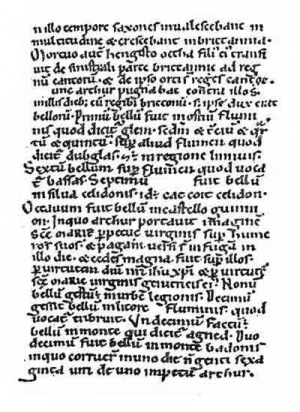 n illo tempore saxones inualescebant in
multitudine & crescebant in brittannia.
Mortuo aut hengisto octha fili' ei' transi
uit de sinistrali parte brittannie ad reg
nu cantoru. & de ipso orti s reges cantor.
unc arthur pugnabat contra illos.
in illis dieb; cu regib; brittonu. s; ipse dux erat
belloru. Primu bellu fuit in ostiu flumi
nis quod dicit' glein. scdm & tciu & qr
tu & quintu. sup aliud flumen quod
dicit' dubglas. & in regione linnuis.
Sextu bellum sup flumen quod uoca
t' bassas. Septimu fuit bellu
in silua celidonis. id. e cat coit celidon.
Octauum fuit bellu in castello guinni
on. In quo arthur portauit imagine
sce marie ppetue uirginis sup hume
ros suos. & pagani uersi s in fuga in
illo die. & cedes magna fuit sup illos.
p uirtutem dni nri ihu xpi & p uirtute
sce marie uirginis genitricis ei'. Nonu
bellu gestu e in urbe legionis. Decimu
gessit bellu in litore fluminis. quod
uocat' tribruit. Undecimu factu e
bellu in monte qui dicit' agned. Duo
decimu fuit bellu in monte badonis
in quo corruer' in uno die n genti sexa
ginta uiri de uno impetu arthur.